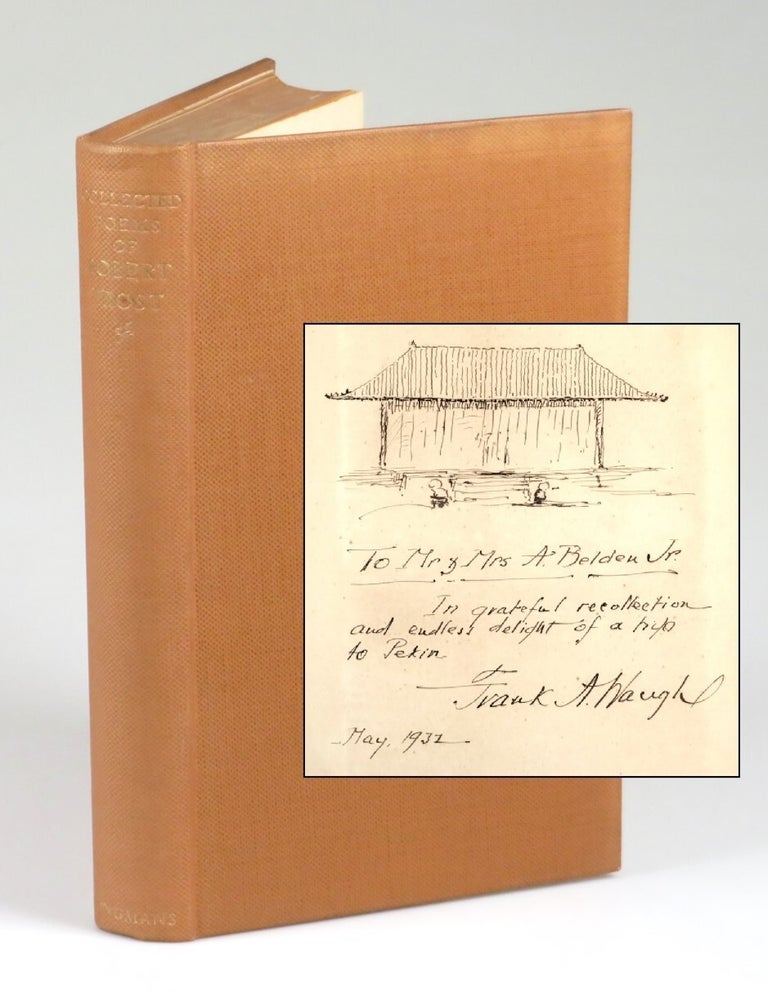 COLLECTED
POEMS
OF
ROBERT
FROST
LONGMANS
To Mr & Mrs A. Belden Jr.
In grateful recollection
and endless delight of a trip
to Pekin
Frank A. Waugh
May, 1932